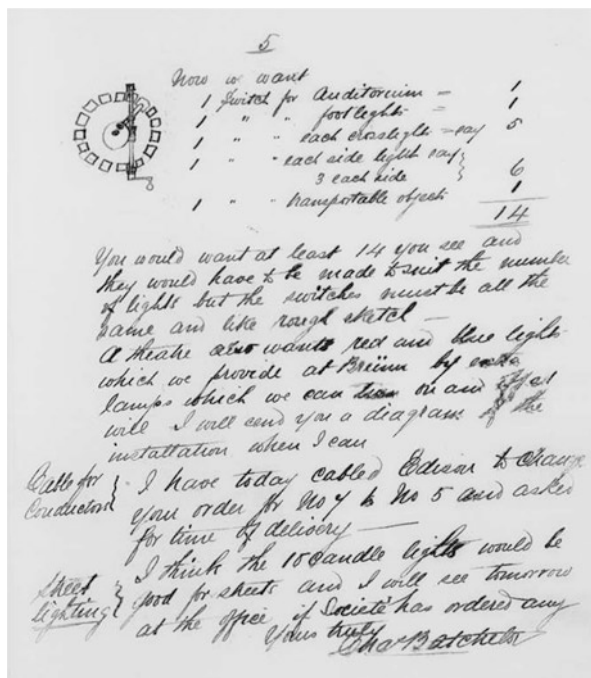 5
Now we want
1 Switch for Auditorium = 1
1 " " footlights = 1
1 " " each crosslight = say 5
1 " " each side light say }
3 each side } 6
1 " " transportable objects 1
14
You would want at least 14 you see and
they would have to be made to suit the number
of lights but the switches must be all the
same and like rough sketch —
A theatre also wants red and blue lights
which we provide at Brünn by extra
lamps which we can turn on and off at
will I will send you a diagram of the
installation when I can
Cable for
Conductors }
I have today cabled Edison to change
your order for No 7 to No 5 and asked
for time of delivery —
Street
lighting }
I think the 10 Candle lights would be
good for streets and I will see tomorrow
at the office if Societé has ordered any
Yours truly
Chas Batchelor